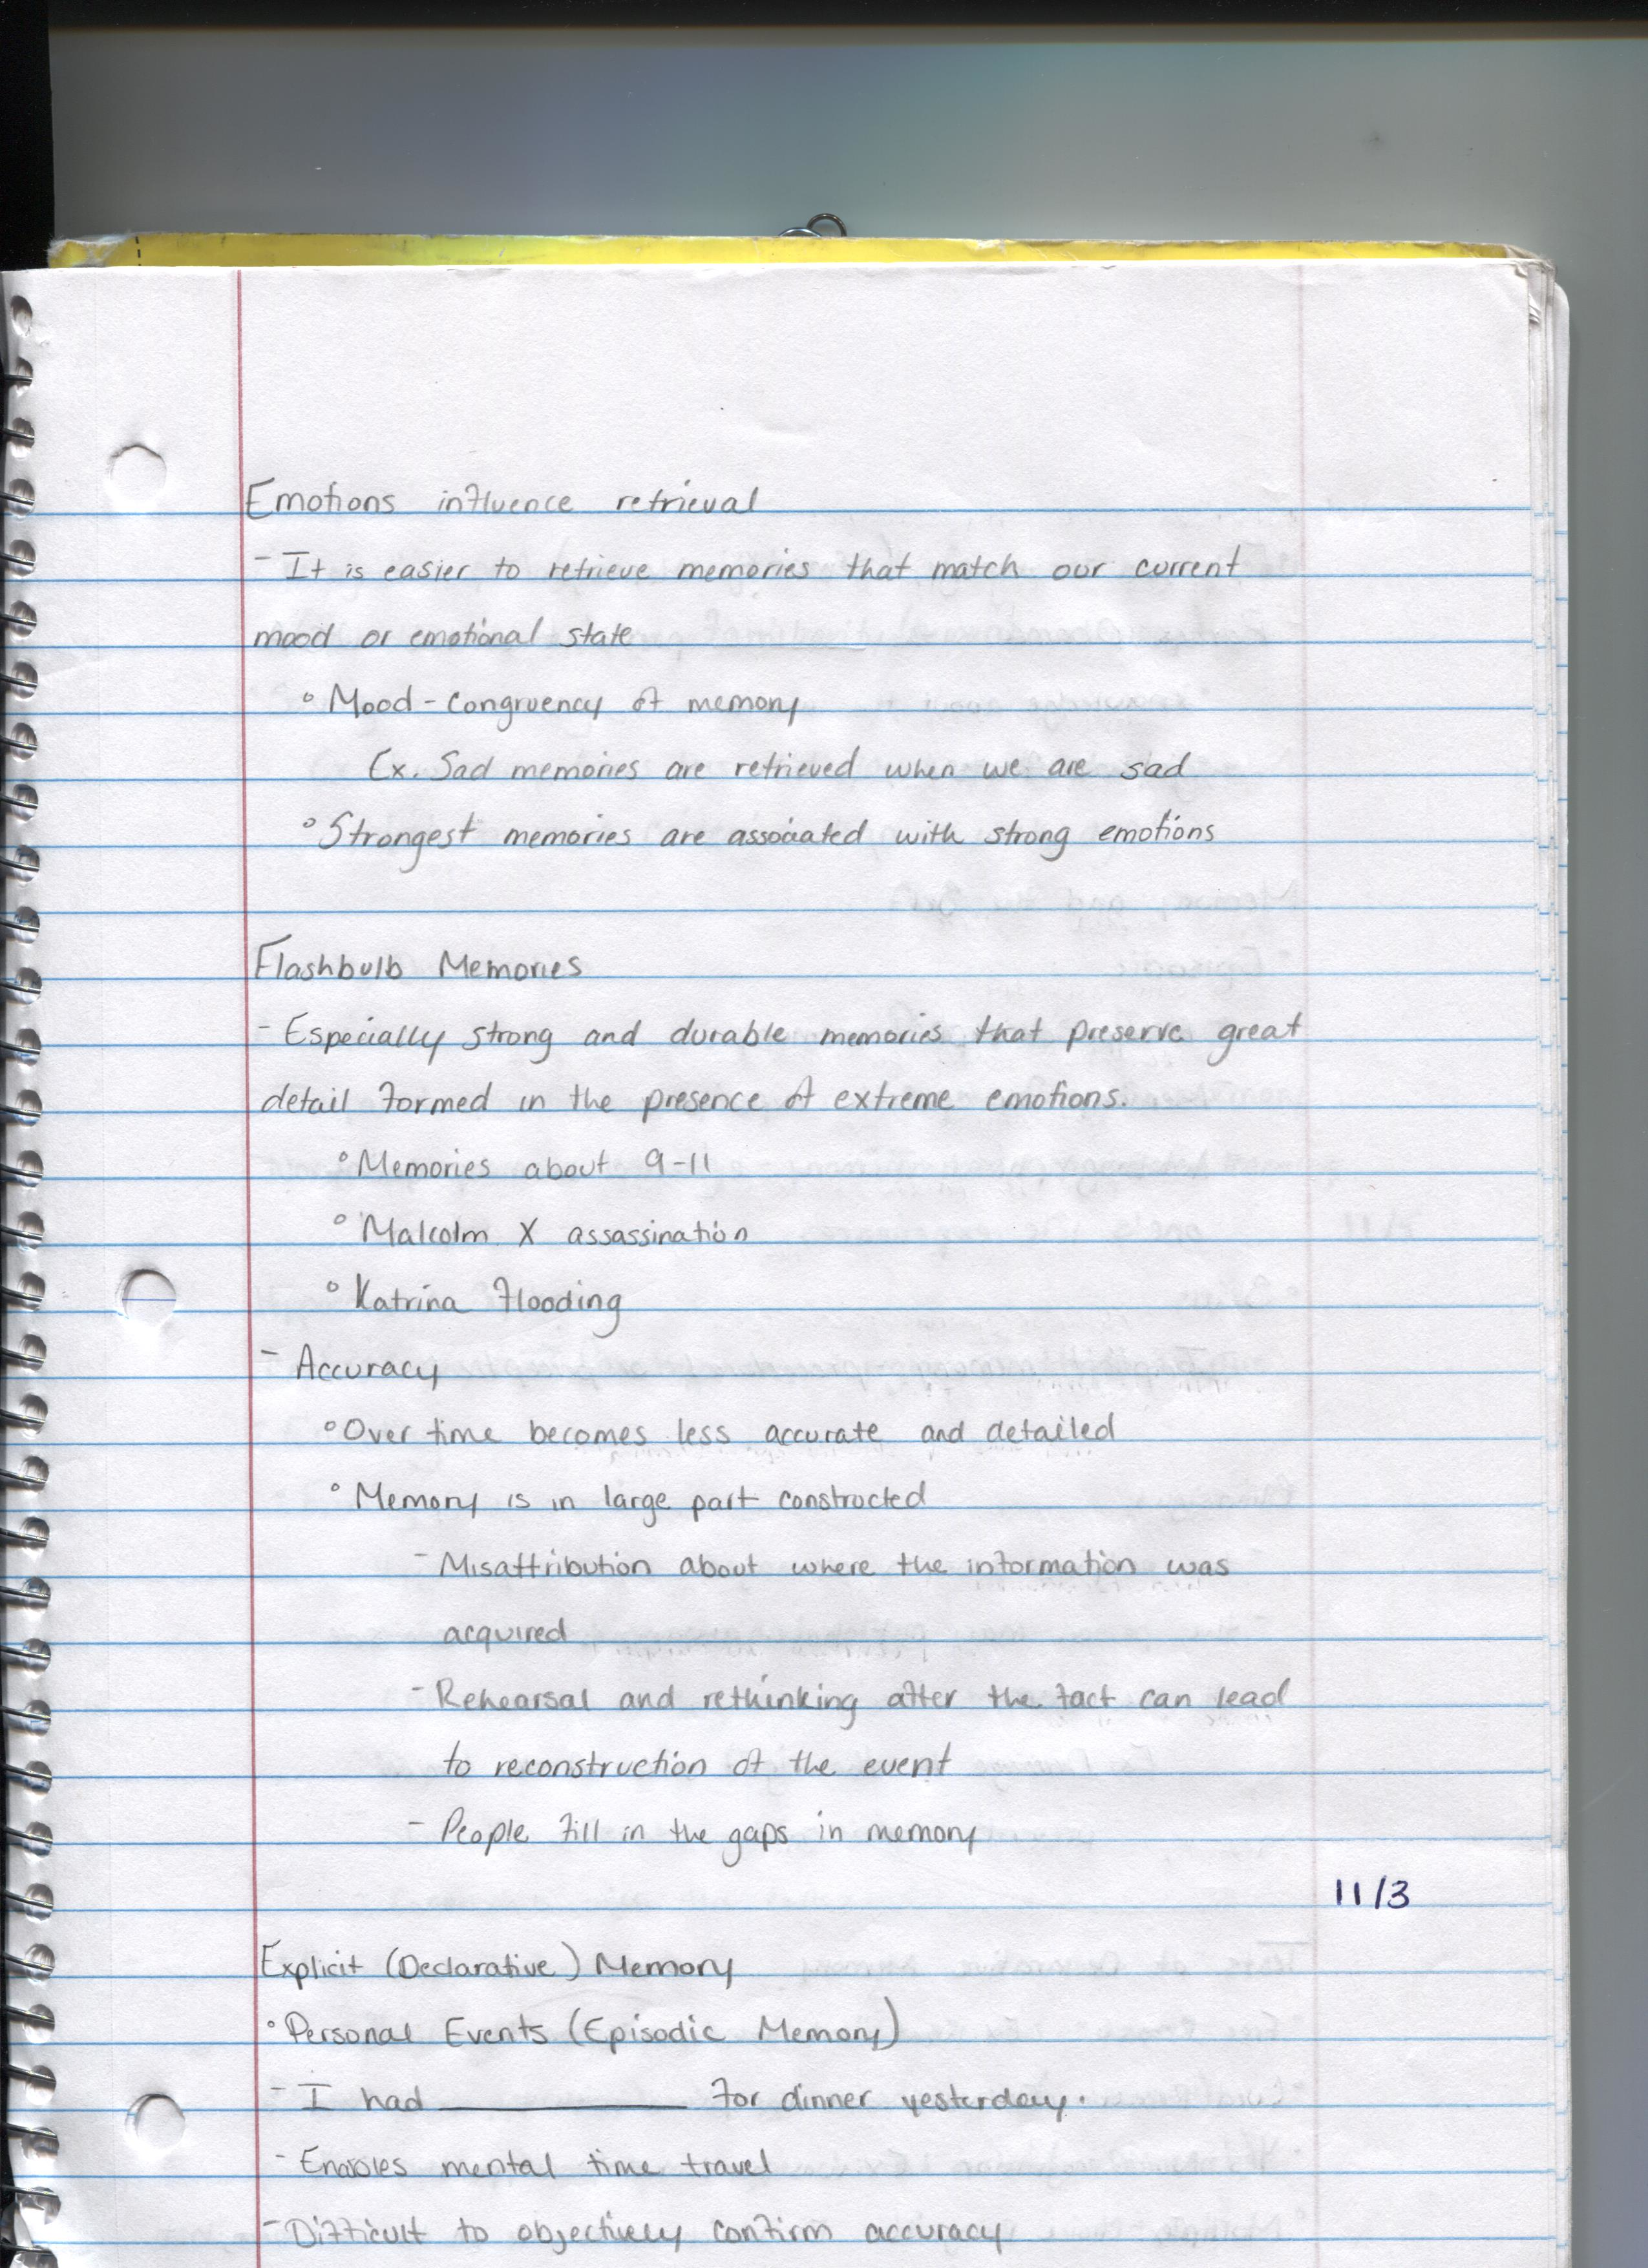 Emotions influence retrieval
- It is easier to retrieve memories that match our current
mood or emotional state
° Mood-congruency of memory
Ex. Sad memories are retrieved when we are sad
° Strongest memories are associated with strong emotions
Flashbulb Memories
- Especially strong and durable memories that preserve great
detail formed in the presence of extreme emotions.
° Memories about 9-11
° Malcolm X assassination
° Katrina flooding
- Accuracy
° Over time becomes less accurate and detailed
° Memory is in large part constructed
- Misattribution about where the information was
acquired
- Rehearsal and rethinking after the fact can lead
to reconstruction of the event
- People fill in the gaps in memory
11/3
Explicit (Declarative) Memory
° Personal Events (Episodic Memory)
- I had ________ for dinner yesterday.
- Enables mental time travel
- Difficult to objectively confirm accuracy